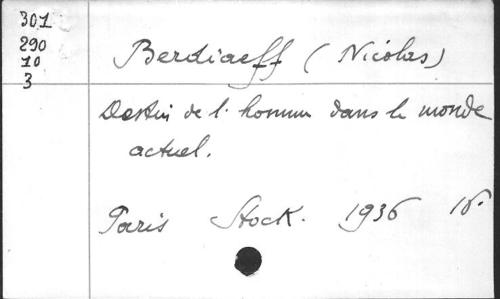 301
290
10
3
Berdiaeff (Nicolas)
Destin de l'homme dans le monde
actuel.
Paris Stock. 1936 16.